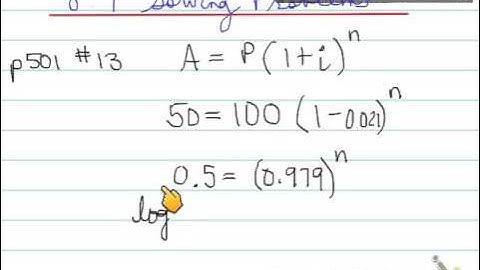 Solving Problems
p501 #13 A = P(1+i)^n
50 = 100 (1-0.021)^n
0.5 = (0.979)^n
log